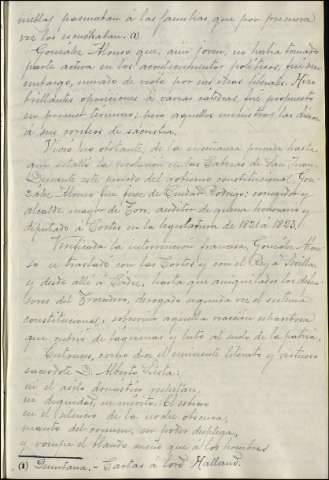 nuellas pasmaban á las familias que por primera
vez las escuchaban. (1)
González Alonso que, aún joven, no había tomado
parte activa en los acontecimientos políticos, fué sin
embargo, mirado de reojo por sus ideas liberales. Hizo
brillantes oposiciones á varias cátedras, fué propuesto
en primer término; pero aquellos ministros las daban
á sus correos de sacristía.
Vivió no obstante de la enseñanza privada hasta
que estalló la revolución en las Cabezas de San Juan.
Durante este período del gobierno constitucional, Gon-
zález Alonso fué juez de Ciudad Rodrigo; corregidor y
alcalde mayor de Toro, auditor de guerra honorario y
diputado á Cortes en la legislatura de 1821 á 1823.
Verificada la intervención francesa, González Alon-
so se trasladó con las Cortes y con el Rey á Sevilla
y desde allí á Cádiz, hasta que aniquilados los defen-
sores del Trocadero, derogado enseguida el sistema
constitucional, sobrevino aquella reacción
que cubrió de lágrimas y luto el suelo de la patria.
Entonces, como dice el eminente literato y virtuoso
sacerdote D. Alberto Lista:
ni el asilo doméstico respetan,
ni dignidad, ni mérito. El
en el silencio de la noche obscura,
manto del crimen, su poder despliega,
y ocupa el blando sueño que á los hombres
(1) Quintana. - Cartas á lord Holland.